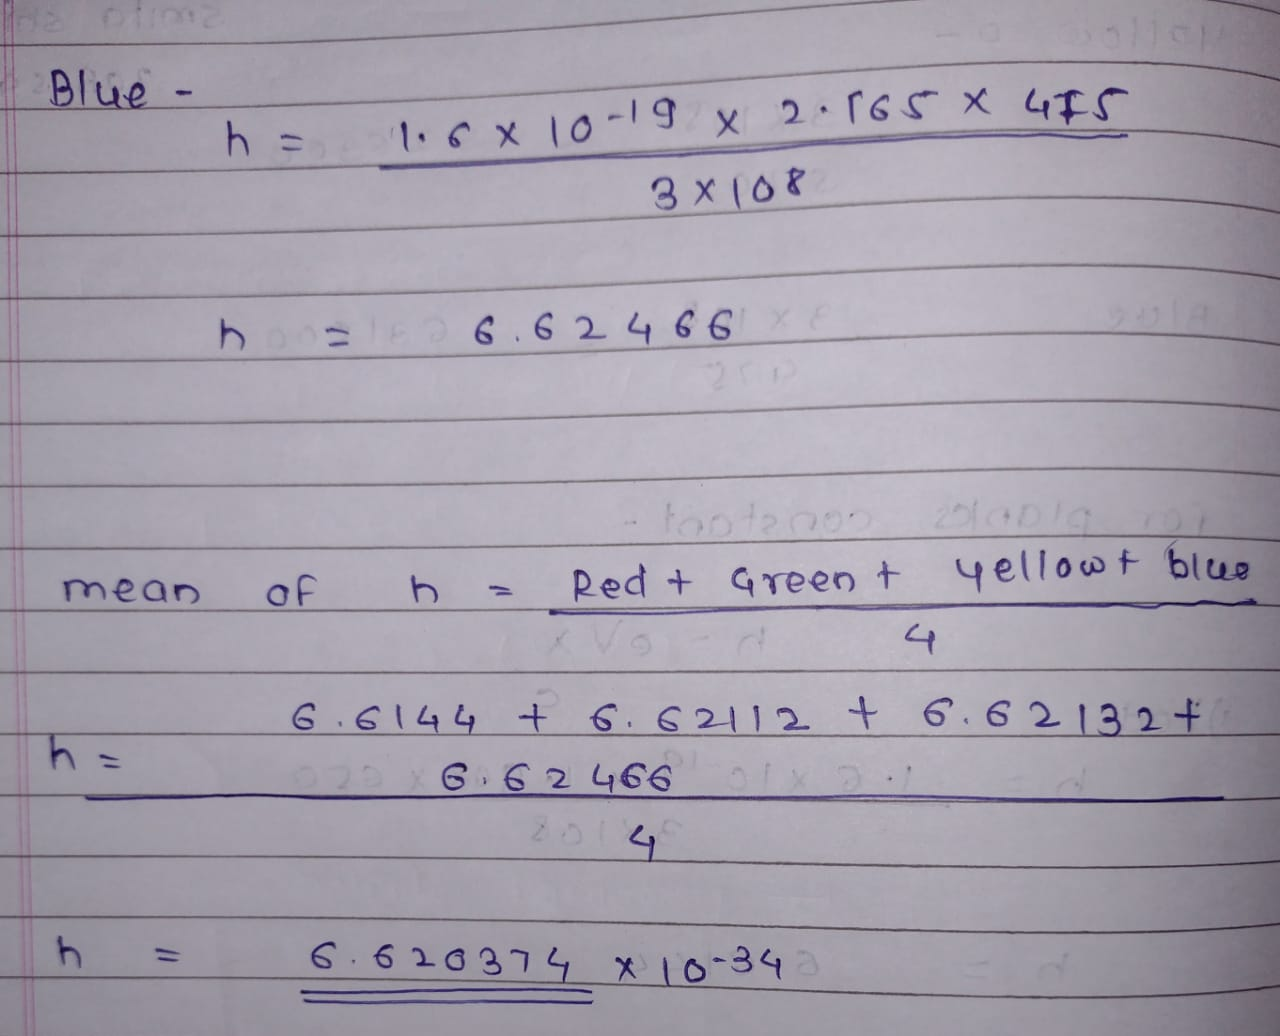 Blue -
h = 1.6 x 10-19 x 2.615 x 475
3 x 108
h = 6.62466
mean of h = Red + Green + yellow + blue
4
6.6144 + 6.62112 + 6.62132 +
h = 6.62466
4
h = 6.620374 x 10-34